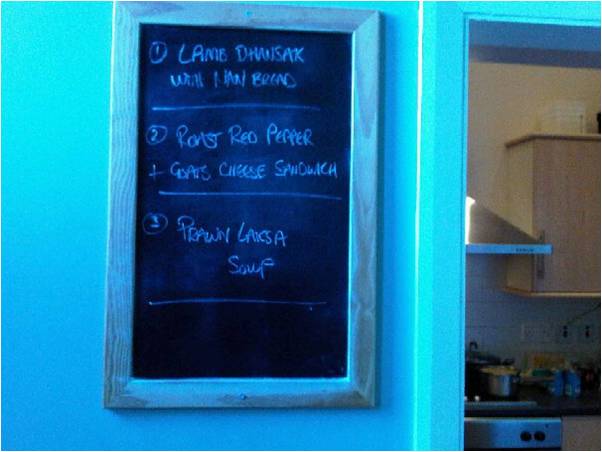 ① LAMB DHANSAK
WITH NAN BREAD
② ROAST RED PEPPER
+ GOATS CHEESE SANDWICH
③ PRAWN LAKSA
SOUP